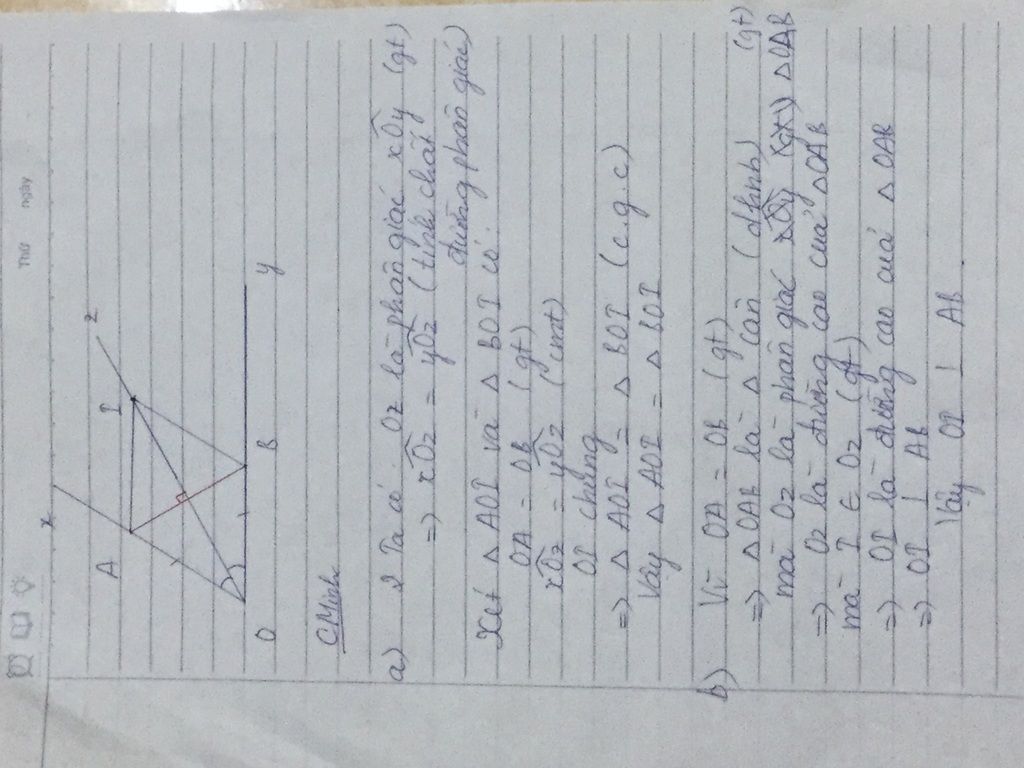 Thứ ngày
x
z
A
I
O
B
y
CMinh
a) Ta có Oz là phân giác xOy (gt)
=> xOz = yOz (tính chất
đường phân giác)
Xét △ AOI và △ BOI có:
OA = OB (gt)
xOz = yOz (cmt)
OI chung
=> △ AOI = △ BOI (c.g.c)
Vậy △ AOI = △ BOI
b) Vì OA = OB (gt)
=> △ OAB là △ cân (đ/hình) (gt)
mà Oz là phân giác xOy (gt) △OAB
=> Oz là đường cao của △OAB
mà I ∈ Oz (gt)
=> OI là đường cao của △ OAB
=> OI ⊥ AB
Vậy OI ⊥ AB